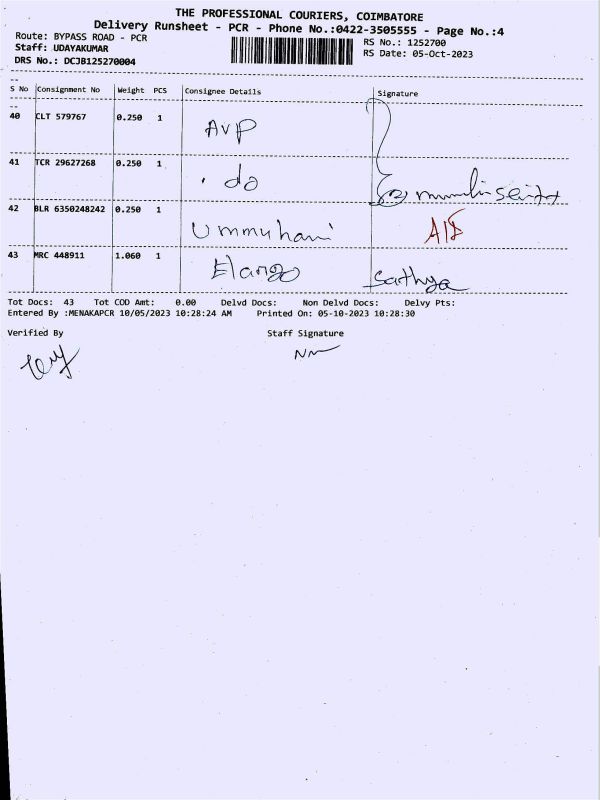 THE PROFESSIONAL COURIERS, COIMBATORE
Delivery Runsheet - PCR - Phone No.:0422-3505555 - Page No.:4
Route: BYPASS ROAD - PCR
RS No.: 1252700
Staff: UDAYAKUMAR
RS Date: 05-Oct-2023
DRS No.: DCJB125270004
S No Consignment No Weight PCS Consignee Details Signature
40 CLT 579767 0.250 1 AVP
41 TCR 29627268 0.250 1 do
42 BLR 6350248242 0.250 1 Ummuhani
43 MRC 448911 1.060 1 Elango Sathya
Tot Docs: 43 Tot COD Amt: 0.00 Delvd Docs: Non Delvd Docs: Delvy Pts:
Entered By :MENAKAPCR 10/05/2023 10:28:24 AM Printed On: 05-10-2023 10:28:30
Verified By Staff Signature